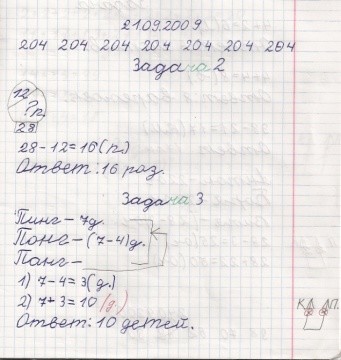 21.09.2009
204 204 204 204 204 204 204
Задача 2
12
?п.
28
28-12=16(п.)
Ответ: 16 раз.
Задача 3
Пинг - 7д.
Понг - (7-4)д.
Панг -
К
1) 7-4=3(д.)
2) 7+3=10(д.)
Ответ: 10 детей.
КД ДП.